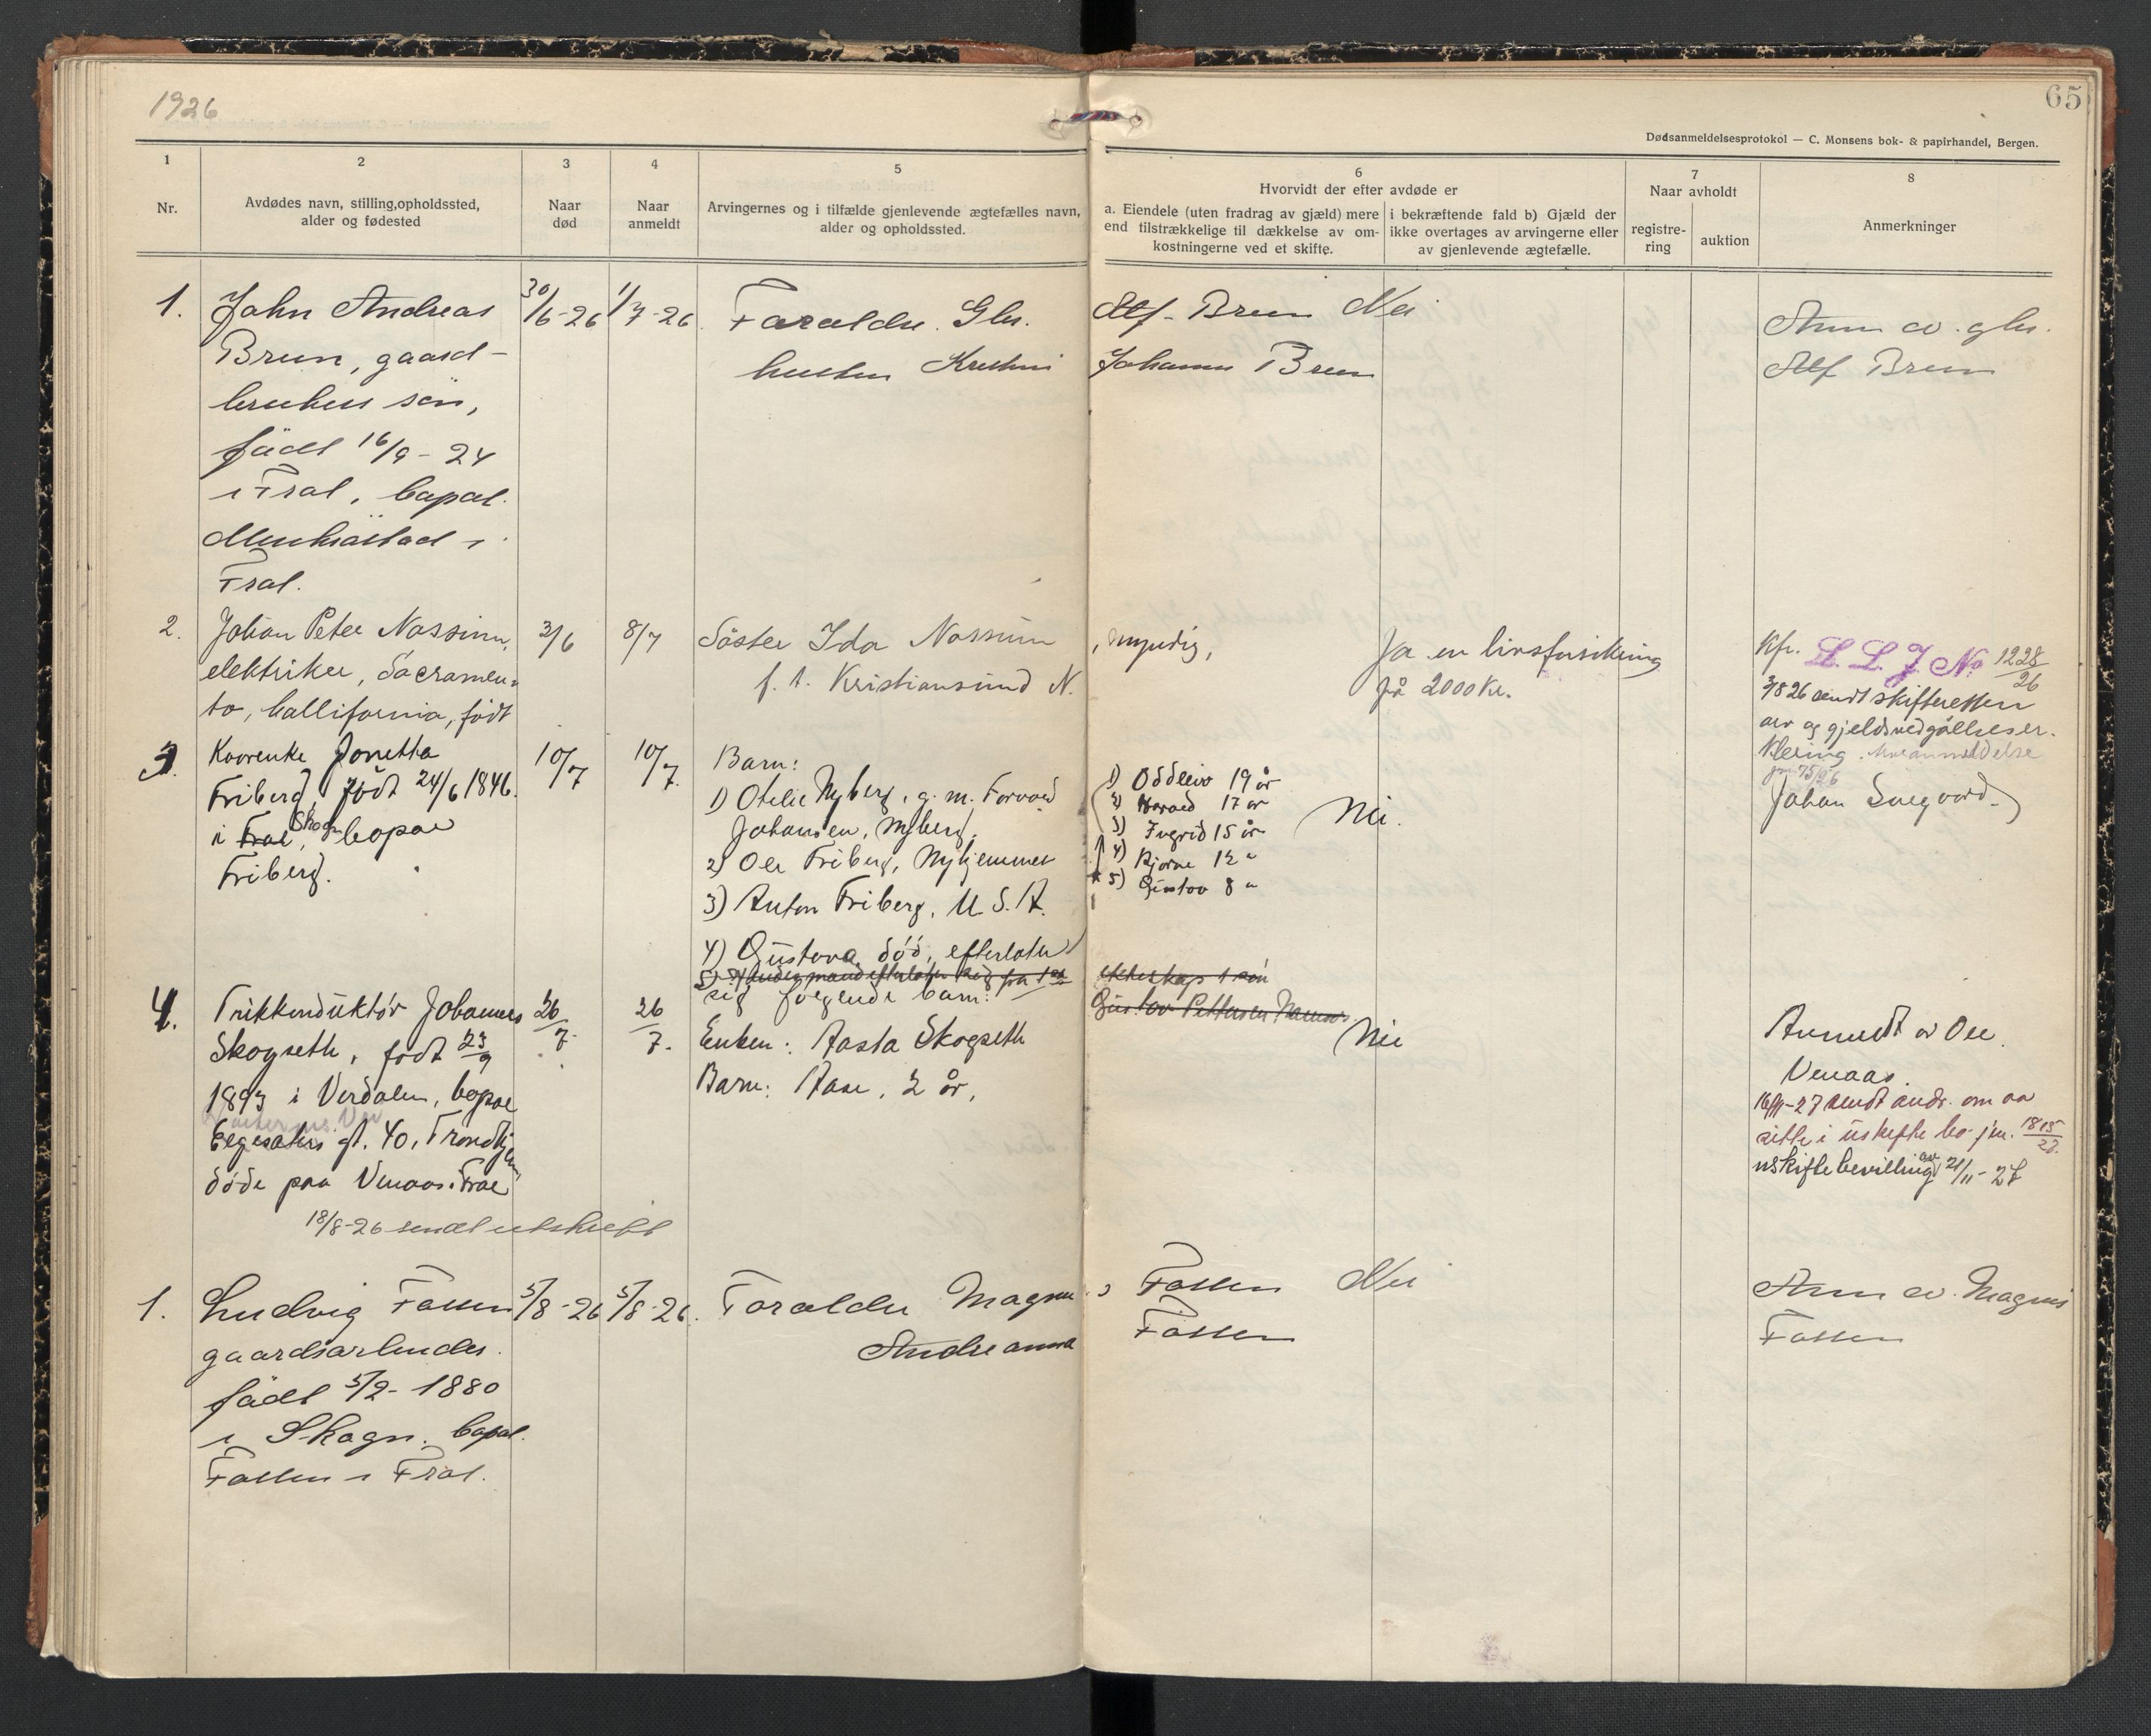 1926
65
Dødsanmeldelsesprotokol — C. Monsens bok- & papirhandel, Bergen.
1
Nr.
2
Avdødes navn, stilling, opholdssted,
alder og fødested
3
Naar
død
4
Naar
anmeldt
5
Arvingernes og i tilfælde gjenlevende ægtefælles navn,
alder og opholdssted.
6
Hvorvidt der efter avdøde er
a. Eiendele (uten fradrag av gjæld) mere
end tilstrækkelige til dækkelse av om-
kostningerne ved et skifte.
i bekræftende fald b) Gjæld der
ikke overtages av arvingerne eller
av gjenlevende ægtefælle.
7
Naar avholdt
registre-
ring
auktion
8
Anmerkninger
1.
John Andreas
Brun, gaard-
brukers søn,
født 16/9-24
i Frol, bopæl
Frol.
30/6-26
1/7-26.
Forældre. Gbr. Alf. Brun
hustru Johanna Brun
Nei
Anm av. gbr.
Alf Brun
2.
Johan Peter Nossum,
elektriker, Sacramen-
to, Callifornia, født
3/6
8/7
Søster Ida Nossum, myndig,
f. t. Kristiansund N.
Ja en livsforsikring
på 2000 Kr.
Kfr. L. L. J. No 1228/26
3/8 26 sendt skifteretten
arv og gjeldsvedgåelseser-
klering.
3.
Jonetta
Friberg, født 24/6 1846.
i Frol, Skogn bopæl
Friberg.
10/7
10/7.
Barn:
1) Otelie Nyberg, g. m. Torvald
Johansen, Nyberg.
2) Ole Friberg, Nyhjemmet
3) Anton Friberg, U. S. A.
4) Gustava, død, efterlater
sig følgende barn:
1) Oddleiv 19 år
2) Harald 17 år
3) Ingrid 15 år
4) Bjarne 12 "
5) Gustav 8 "
Nei.
4.
Trikkonduktør Johannes
Skogseth, født 23/9
1893 i Verdalen, bopæl
gt. 40, Trondhjem
døde paa Venaas i Frol
18/8-26 sendt utskrift
26/7
26/7.
Enken: Aasta Skogseth
Barn: Aase, 2 år,
Nei
Anmeldt av Ole
Venaas.
16/11-27 sendt andr. om aa
sitte i uskifte bo jnr. 1815/27.
uskiftebevilling av 21/11-27
1.
Ludvig Fossen
gaardsarbeider.
født 5/2-1880
i Skogn. bopæl.
Fossen i Frol.
5/8-26
5/8-26.
Forældre Magnus Fossen
Andreanna Fossen
Nei
Anm av. Magnus
Fossen